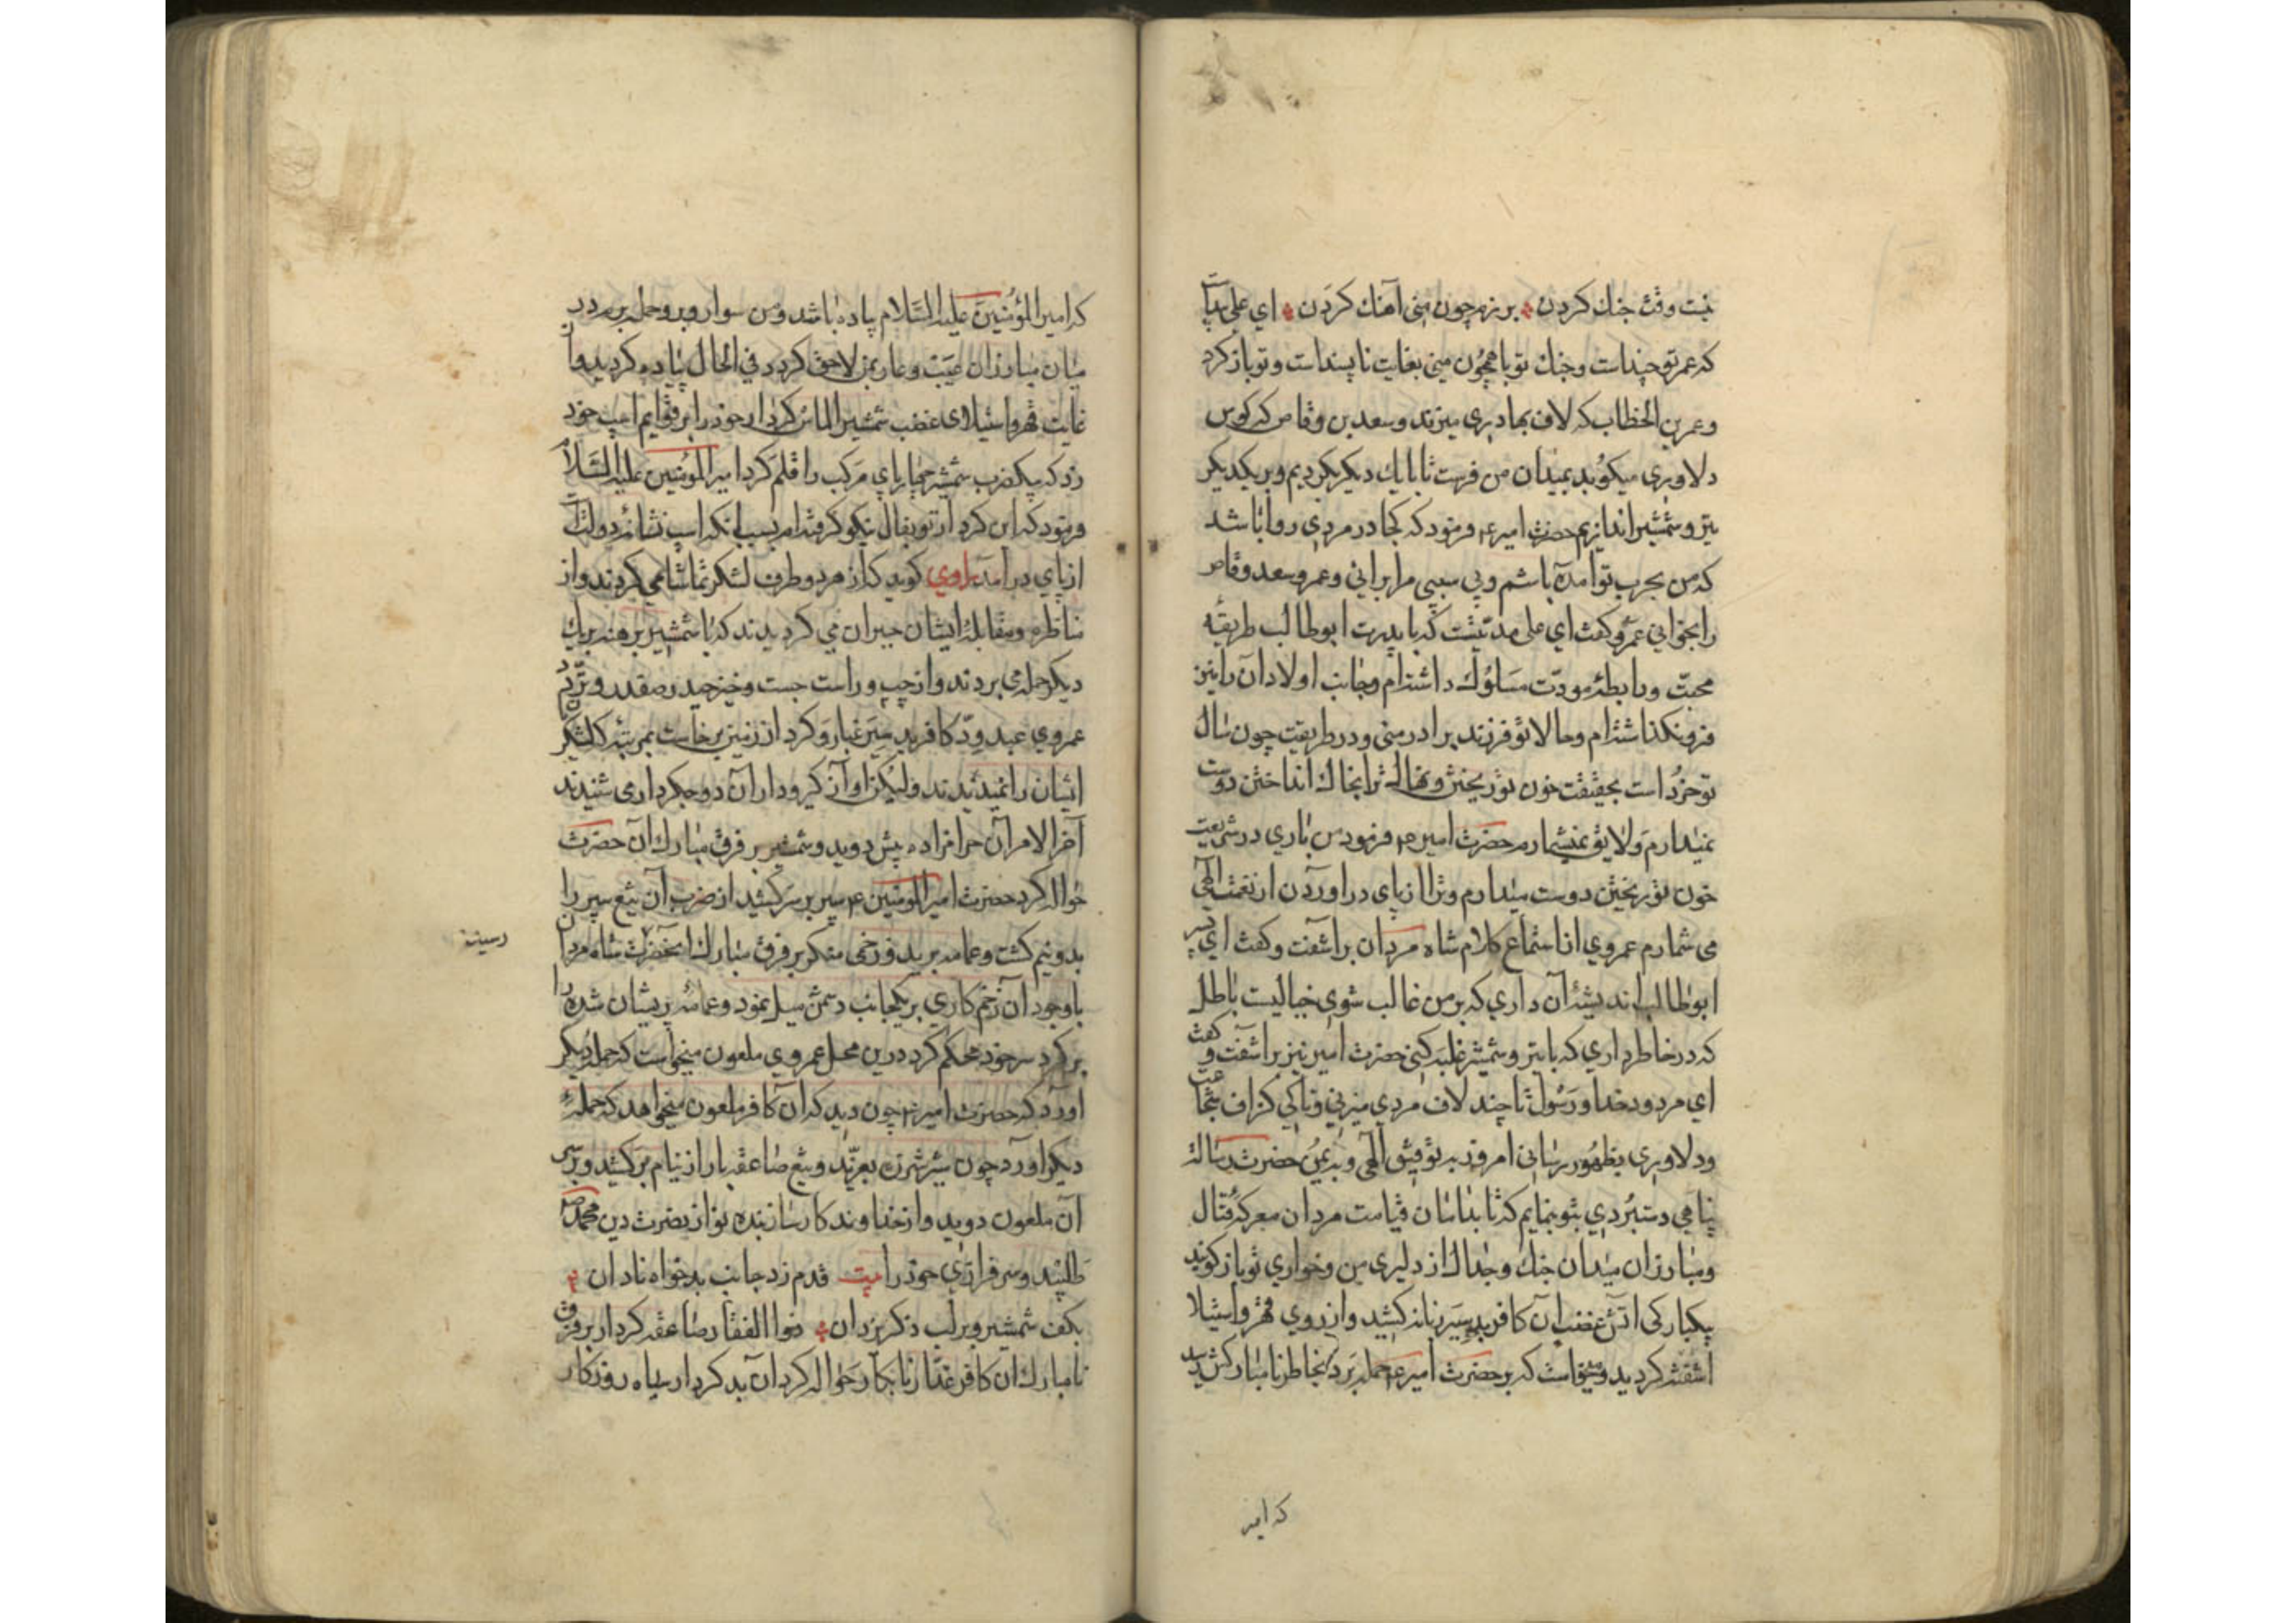 نیست وقت جنك كردن برزم چون منی آهنك كردن ای علی بدان
كه عمر تو چنداست وجنك تو با همچون منی بغایت ناپسنداست وتو بازكرد
وعمر بن الخطاب كه لاف بهادری میزند وسعد بن وقاص كه كوس
دلاوری میكوبد بمیدان من فرست تا با یك دیكر بكردیم وبر یكدیكر
تیر وشمشیر اندازیم حضرت امیر ع فرمود كه كجا در مردی روا باشد
كه من بحرب تو امده باشم وبی سببی مرا برانی وعمر وسعد وقاص
را بخوانی عمرو كفت ای علی مدتیست كه با پدرت ابوطالب طریقه
محبت ورابطه مودت مسلوك داشته‌ام وجانب اولاد آن را نیز
فرو نكذاشته‌ام وحالا تو فرزند برادر منی ودر طریقت چون سال
تو خرد است بحقیقت خون تو ریختن ونهال ترا بخاك انداختن دوست
نمیدارم ولایق نمیشمارم حضرت امیر ع فرمود من باری در شریعت
خون تو ریختن دوست میدارم وترا از پای در اوردن از نعمت الهی
می شمارم عمروی از استماع كلام شاه مردان براشفت وكفت ای پسر
ابوطالب اندیشۀ آن داری كه بر من غالب شوی خیالیست باطل
كه در خاطر داری كه با تیر وشمشیر غلبه كنی حضرت امیر نیز براشفت و كفت
ای مردود خدا ورسول تا چند لاف مردی میزنی وتا كی كزاف شجاعت
ودلاوری بظهور رسانی امروز به توفیق الهی وبه یمن حضرت رسالت
پناهی دستبردی بتو بنمایم كه تا بدامان قیامت مردان معركه قتال
ومبارزان میدان جنك وجدال از دلیری من وخواری تو باز كویند
یكبار كی اتش غضب آن كافر بدسیر زبانه كشید واز روی قهر واستیلا
اشفته كردید ومیخواست كه بر حضرت امیر ع حمله برد بخاطر نامباركش رسید
كه امیر
كه امیر المؤمنین علیه السلام پیاده باشد ومن سوار وبرو حمله برم در
میان مبارزان عیب وعار بمن لاحق كردد فی الحال پیاده كردید واز
غایت قهر واستیلای غضب شمشیر الماس كردار خود را بر قوایم اسب خود
زد كه بیك ضرب شمشیر چهار پای مركب را قلم كرد امیر المؤمنین علیه السلام
فرمود كه این كردار تو بفال نیكو كرفته‌ام بسبب انكه اسب نشانۀ دولتست
از پای در آمد راوی كوید كه از هر دو طرف لشكر تماشا می كردند واز
مناظره ومقابلۀ ایشان حیران می كردیدند كه با شمشیر برهنه بر یك
دیكر حمله می بردند واز چپ وراست جست وخیز حیدر صفدر و
عمروی عبدود كافر بد سیر غبار وكرد از زمین برخاست بمرتبه كه لشكر
ایشان را نمیدیدند ولیكن اواز كیرودار آن دو جكردار می شنیدند
آخر الامر آن حرامزاده پیش دوید وشمشیر بر فرق مبارك آن حضرت
حواله كرد حضرت امیر المؤمنین ع سپر بر سر كشید از ضرب آن تیغ سپر را
بدونیم كشت وعمامه برید وزخمی منكر بر فرق مبارك انحضرت شاه مردان
رسید
باوجود ان زخم كاری بر یكجانب دشمن میل نمود وعمامۀ پریشان شده را
بر كرد سر خود محكم كرد درین محل عمروی ملعون میخواست كه حمله دیكر
آورد كه حضرت امیر ع چون دید كه ان كافر ملعون میخواهد كه حملۀ
دیكر اورد چون شیر شرزه بغرید وتیغ صاعقه بار از نیام بر كشید وبر سر
آن ملعون دوید واز خداوند كارساز بنده نواز نصرت دین محمد
طلبید وسرفرازی خود را بیت قدم زد جانب بدخواه نادان
بكف شمشیر وبر لب ذكر یزدان ذوالفقار صاعقه كردار بر فرق
نامبارك ان كافر غدار نابكار حواله كرد آن بد كردار سیاه روزكار